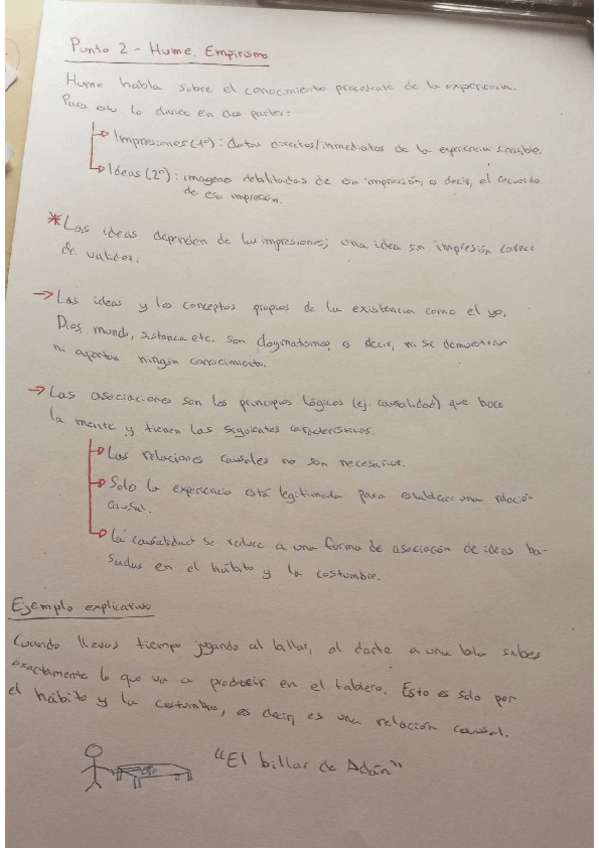 Punto 2 - Hume. Empirismo
Hume habla sobre el conocimiento procedente de la experiencia.
Para eso lo divide en dos partes:
Impresiones (1º): datos directos/inmediatos de la experiencia sensible.
Ideas (2º): imagenes debilitadas de esa impresión, es decir, el recuerdo
de esa impresión.
* Las ideas dependen de las impresiones; una idea sin impresión carece
de validez.
→ Las ideas y los conceptos propios de la existencia como el yo,
Dios, mundo, sustancia etc. son dogmatismos, es decir, ni se demuestran
ni aportan ningún conocimiento.
→ Las asociaciones son los principios lógicos (ej. causalidad) que hace
la mente y tienen las siguientes características.
Las relaciones causales no son necesarias.
Solo la experiencia está legitimada para establecer una relación
causal.
La causalidad se reduce a una forma de asociación de ideas ba-
sadas en el hábito y la costumbre.
Ejemplo explicativo
Cuando llevas tiempo jugando al billar, al darle a una bola sabes
exactamente lo que va a producir en el tablero. Esto es solo por
el hábito y la costumbre, es decir, es una relación causal.
"El billar de Adán"